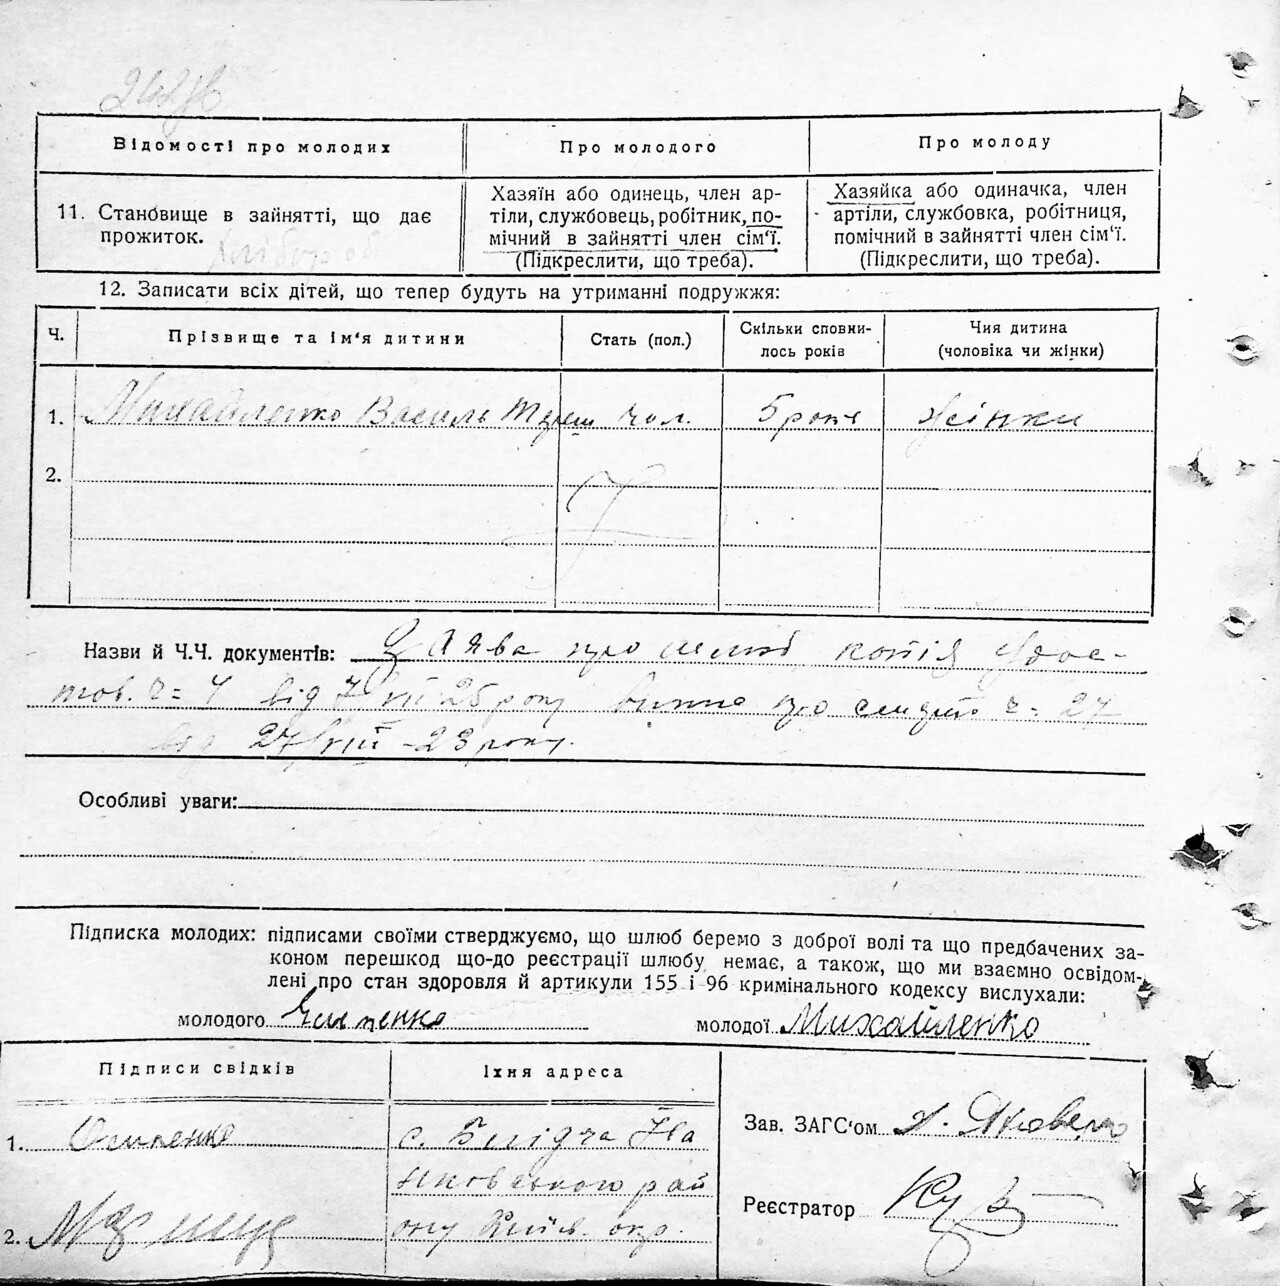 Відомості про молодих
Про молодого
Про молоду
11. Становище в зайнятті, що дає
прожиток.
хлібороб
Хазяїн або одинець, член ар-
тіли, службовець, робітник, по-
мічний в зайнятті член сім'ї.
(Підкреслити, що треба).
Хазяйка або одиначка, член
артіли, службовка, робітниця,
помічний в зайнятті член сім'ї.
(Підкреслити, що треба).
12. Записати всіх дітей, що тепер будуть на утриманні подружжя:
Ч.
Прізвище та ім'я дитини
Стать (пол.)
Скільки сповни-
лось років
Чия дитина
(чоловіка чи жінки)
1. Михайленко Василь Тереш чол. 5 років жінки
2.
Назви й Ч.Ч. документів: Заява про шлюб, копія Удос-
тов. ч = 4 від 7 VII 25 року про ч = 27
від 27/VIII - 23 року.
Особливі уваги:
Підписка молодих: підписами своїми стверджуємо, що шлюб беремо з доброї волі та що предбачених за-
коном перешкод що-до реєстрації шлюбу немає, а також, що ми взаємно освідом-
лені про стан здоровля й артикули 155 і 96 кримінального кодексу вислухали:
молодого молодої Михайленко
Підписи свідків
Їхня адреса
1. Осипенко
с. Іва
нковського рай
ону Київ. окр.
2.
Зав. ЗАГС'ом
Реєстратор